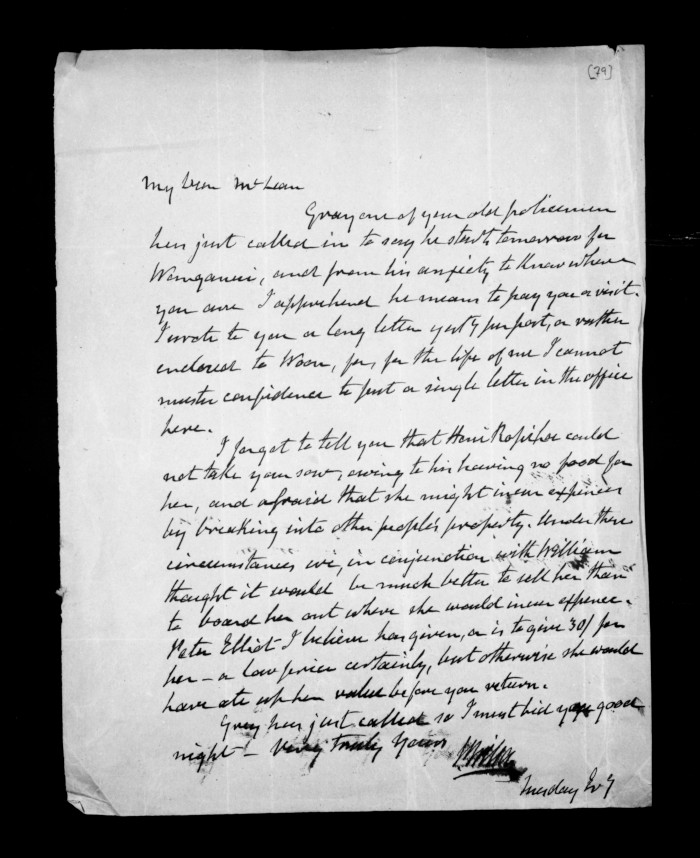 [79]
My Dear McLean
Gray one of your old policemen
has just called in to say he starts tomorrow for
Wanganui, and from his anxiety to know where
you are I apprehend he means to pay you a visit.
I wrote to you a long letter yesty per post, or rather
enclosed to Woon, for, for the life of me I cannot
muster confidence to post a single letter in the office
here.
I forgot to tell you that Honi Ropiha could
not take your sow, owing to his having no food for
her, and afraid that she might incur expenses
by breaking into other people's property. Under these
circumstances we, in conjunction with William
thought it would be much better to sell her than
to board her out where she would incur expense.
Peter Elliot I believe has given, or is to give 30/ for
her - a low price certainly, but otherwise she would
have ate up her value before you return.
Gray has just called so I must bid you good
night - Very truly Yours
Tuesday Evg